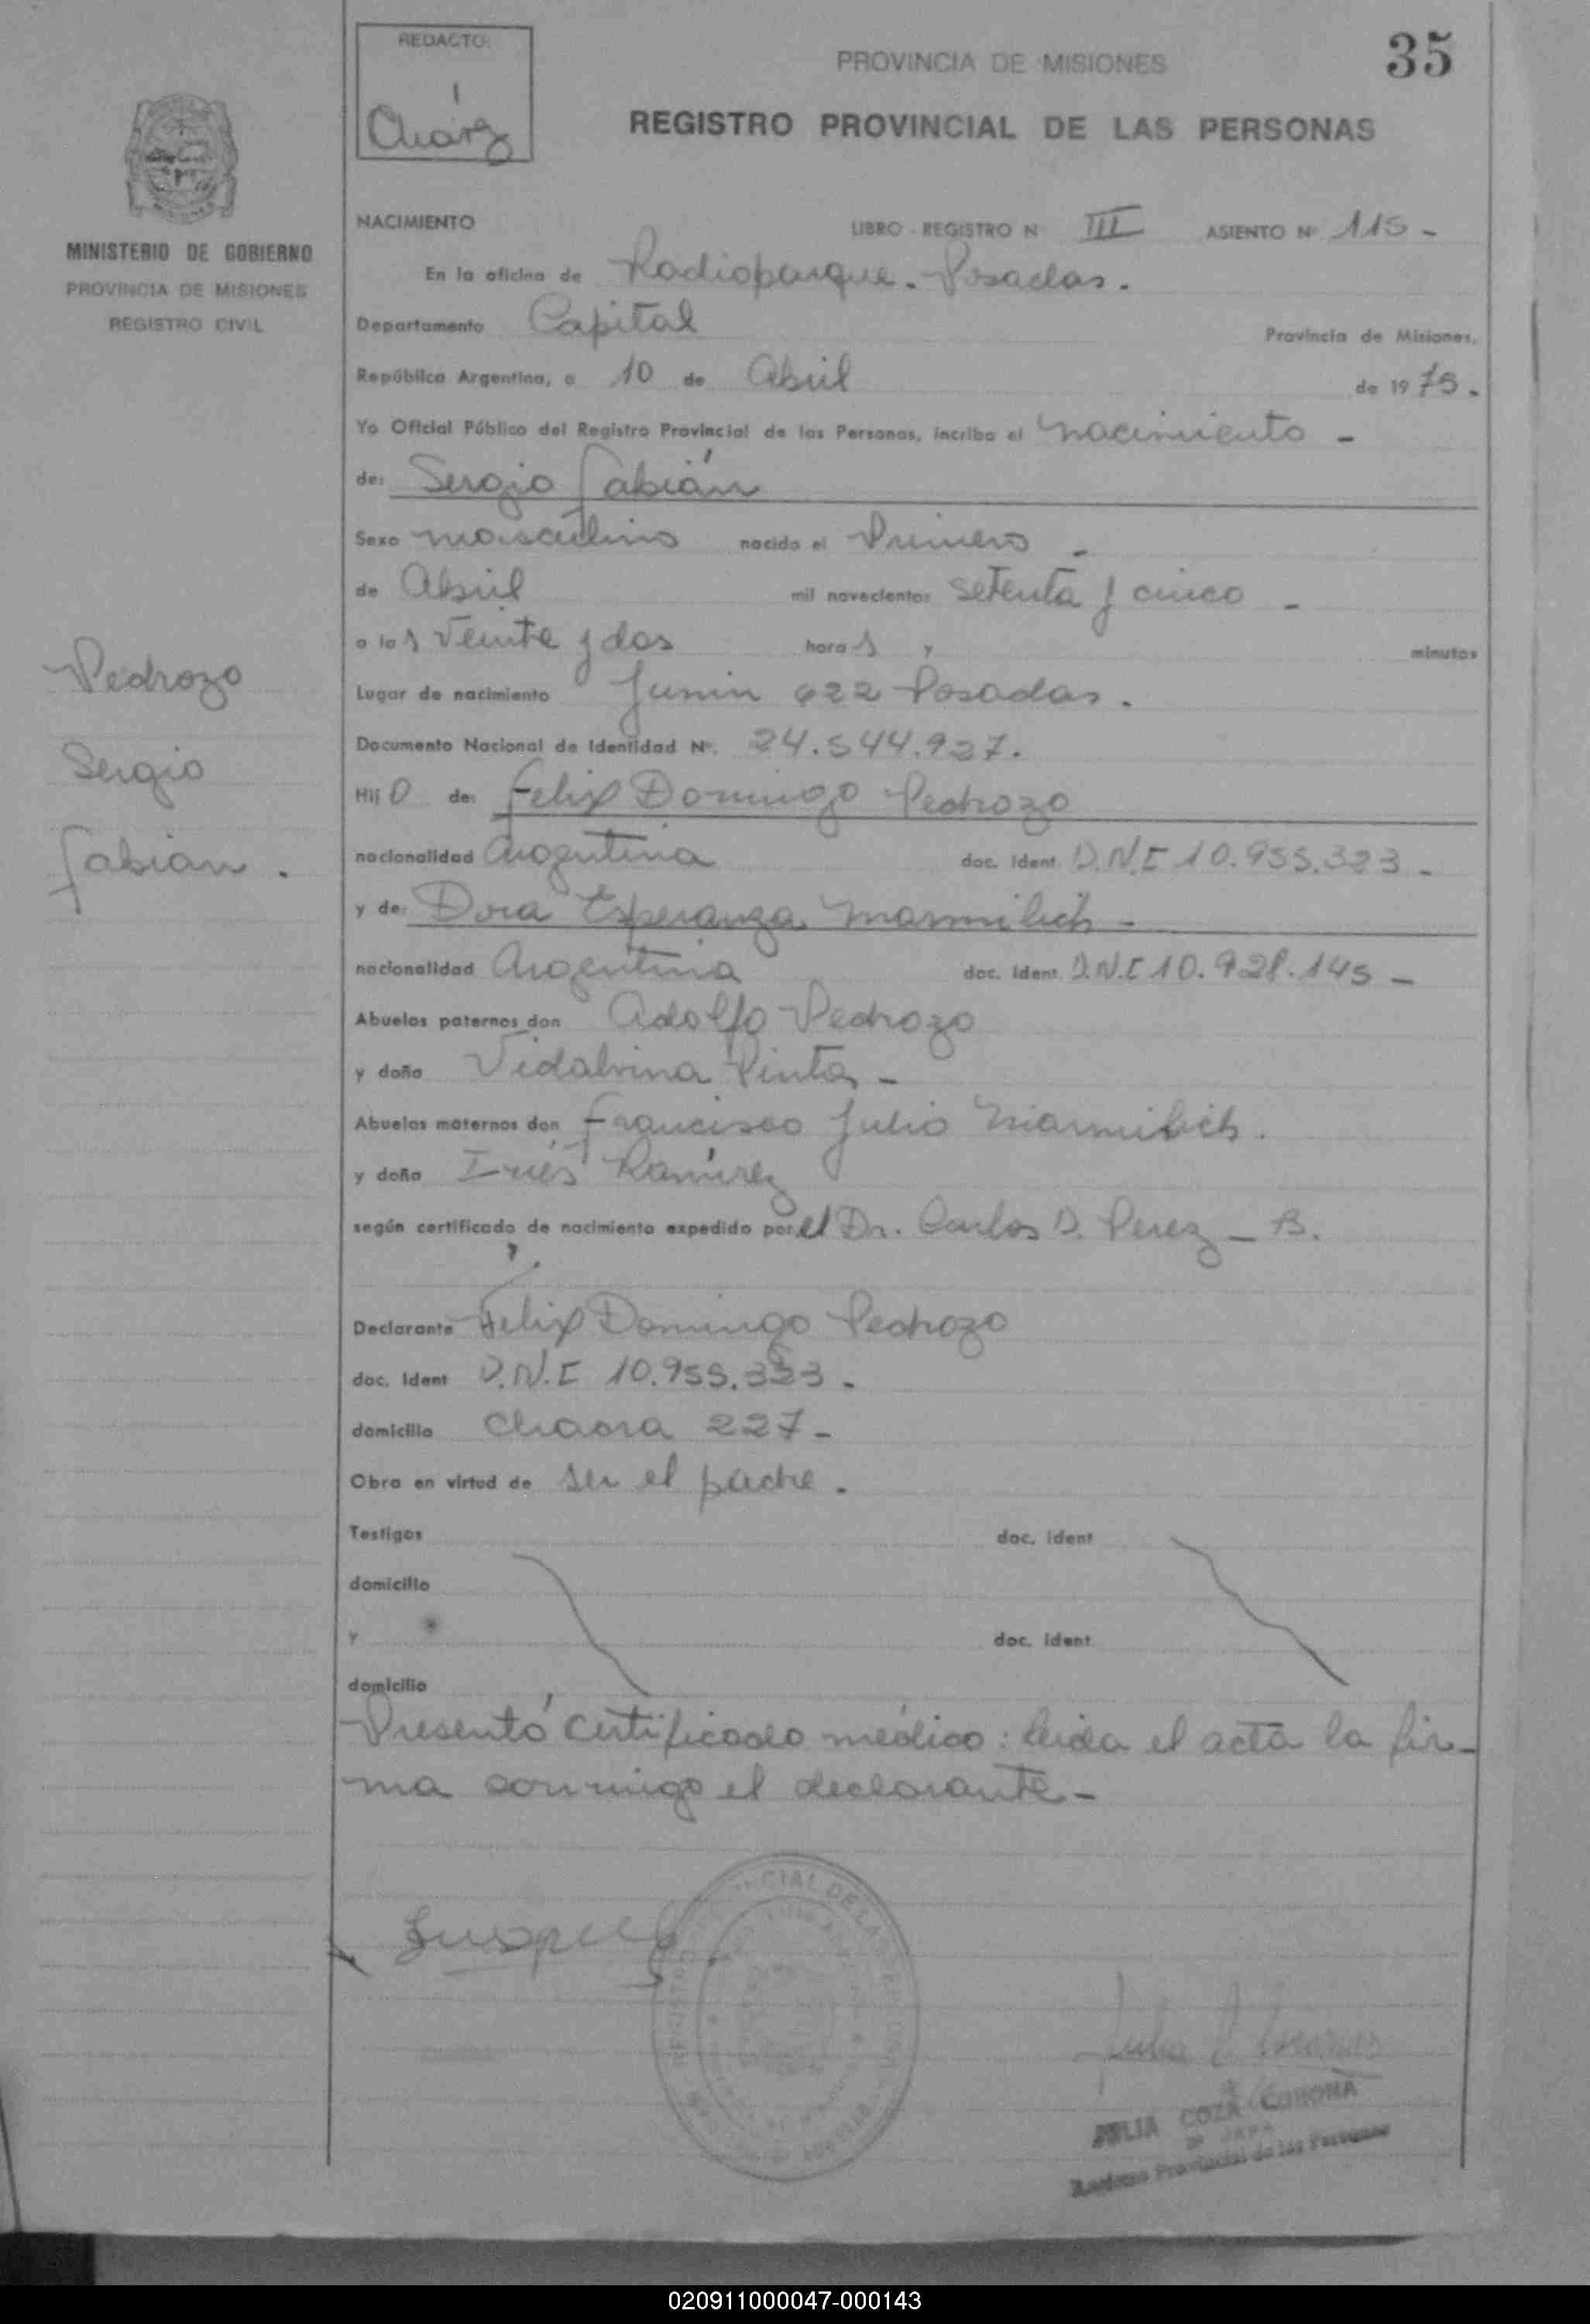 REDACTO:
Chávez
PROVINCIA DE MISIONES
35
REGISTRO PROVINCIAL DE LAS PERSONAS
MINISTERIO DE GOBIERNO
PROVINCIA DE MISIONES
REGISTRO CIVIL
NACIMIENTO LIBRO - REGISTRO N III ASIENTO Nº 115 -
En la oficina de Radioparque - Posadas.
Departamento Capital Provincia de Misiones,
República Argentina, a 10 de Abril de 1975.
Yo Oficial Público del Registro Provincial de las Personas, incribo el nacimiento -
de: Sergio Fabián
Sexo masculino nacido el Primero -
de Abril mil novecientos setenta y cinco -
a las veinte y dos horas y minutos
Lugar de nacimiento Junin 622 Posadas.
Documento Nacional de Identidad Nº. 24.544.927.
Hijo de: Felix Domingo Pedrozo
nacionalidad Argentina doc. Ident. D.N.I 10.955.323 -
y de: Dora Esperanza Marmilich -
nacionalidad Argentina doc. Ident. D.N.I 10.928.145 -
Abuelos paternos don Adolfo Pedrozo
y doña Vidalvina Pinto -
Abuelos maternos don Francisco Julio Marmilich.
y doña Inés Ramírez
según certificado de nacimiento expedido por el Dr. Carlos D. Perez - B.
Declarante Felix Domingo Pedrozo
doc. Ident D.N.I 10.955.323 -
domicilio Chacra 227 -
Obra en virtud de ser el padre.
Testigos doc. ident
domicilio
y doc. ident.
domicilio
Presentó certificado médico: leida el acta la fir-
ma conmigo el declarante -
Pedrozo
Sergio
Fabian.
JULIA COZA CORONA
JEFA
Registro Provincial de las Personas
020911000047-000143